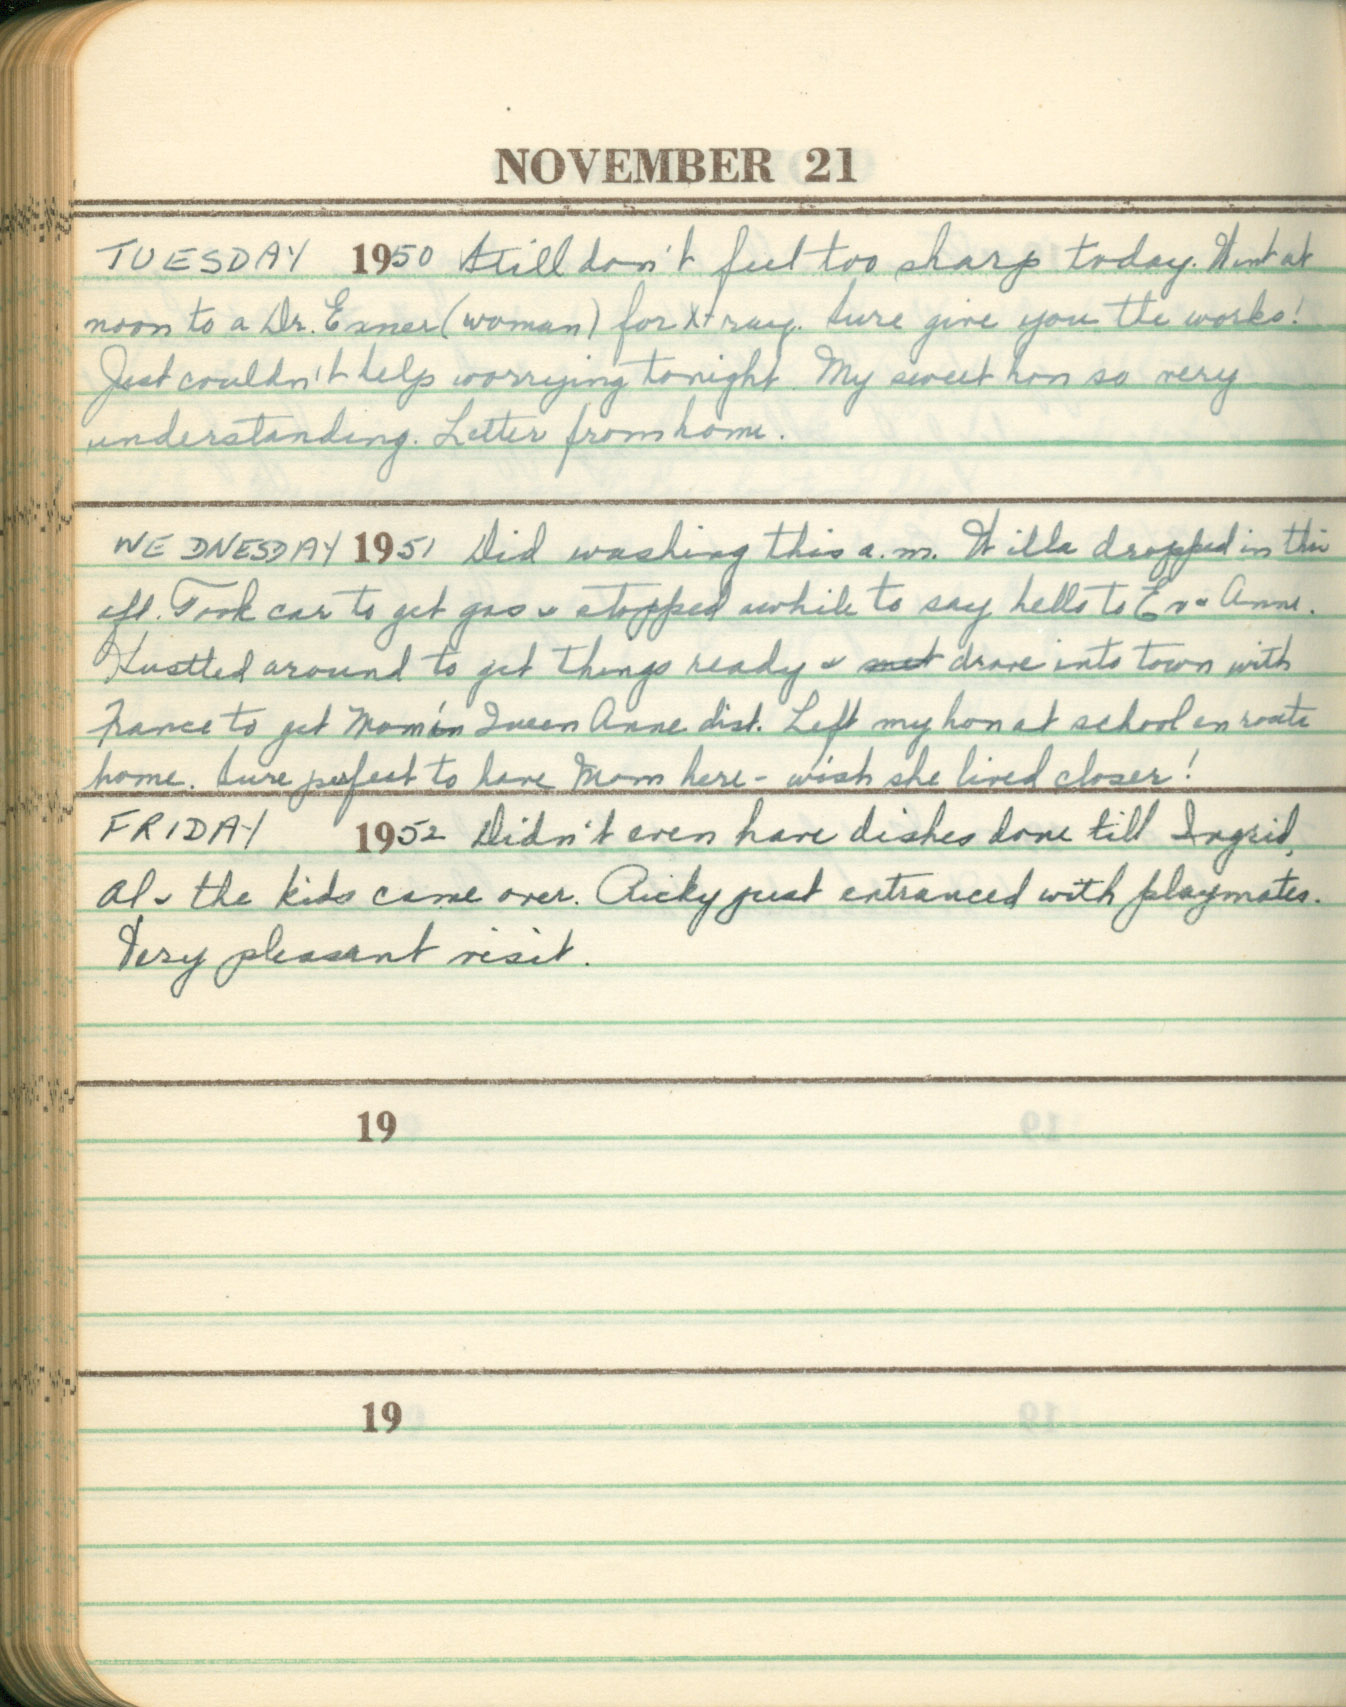 NOVEMBER 21
TUESDAY 1950 Still don't feel too sharp today. Went at
noon to a Dr. Exner (woman) for X-ray. Sure give you the works!
Just couldn't help worrying tonight. My sweet hon so very
understanding. Letter from home.
WEDNESDAY 1951 Did washing this a.m. Willa dropped in this
aft. Took car to get gas & stopped awhile to say hello to Ev & Anne.
Hustled around to get things ready & met drove into town with
France to get Mom in Queen Anne dist. Left my hon at school en route
home. Sure perfect to have Mom here - wish she lived closer!
FRIDAY 1952 Didn't even have dishes done till Ingrid,
Al & the kids came over. Ricky just entranced with playmates.
Very pleasant visit.
19
19